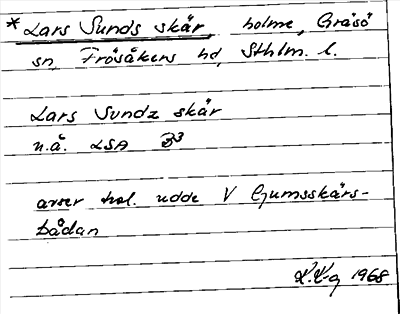 * Lars Sunds skär, holme, Gräsö
sn, Frösåkers hd, Sthlm. l.
Lars Sundz skär
n.å. LSA B3
avser trol. udde V Gumsskärs-
bådan
1968